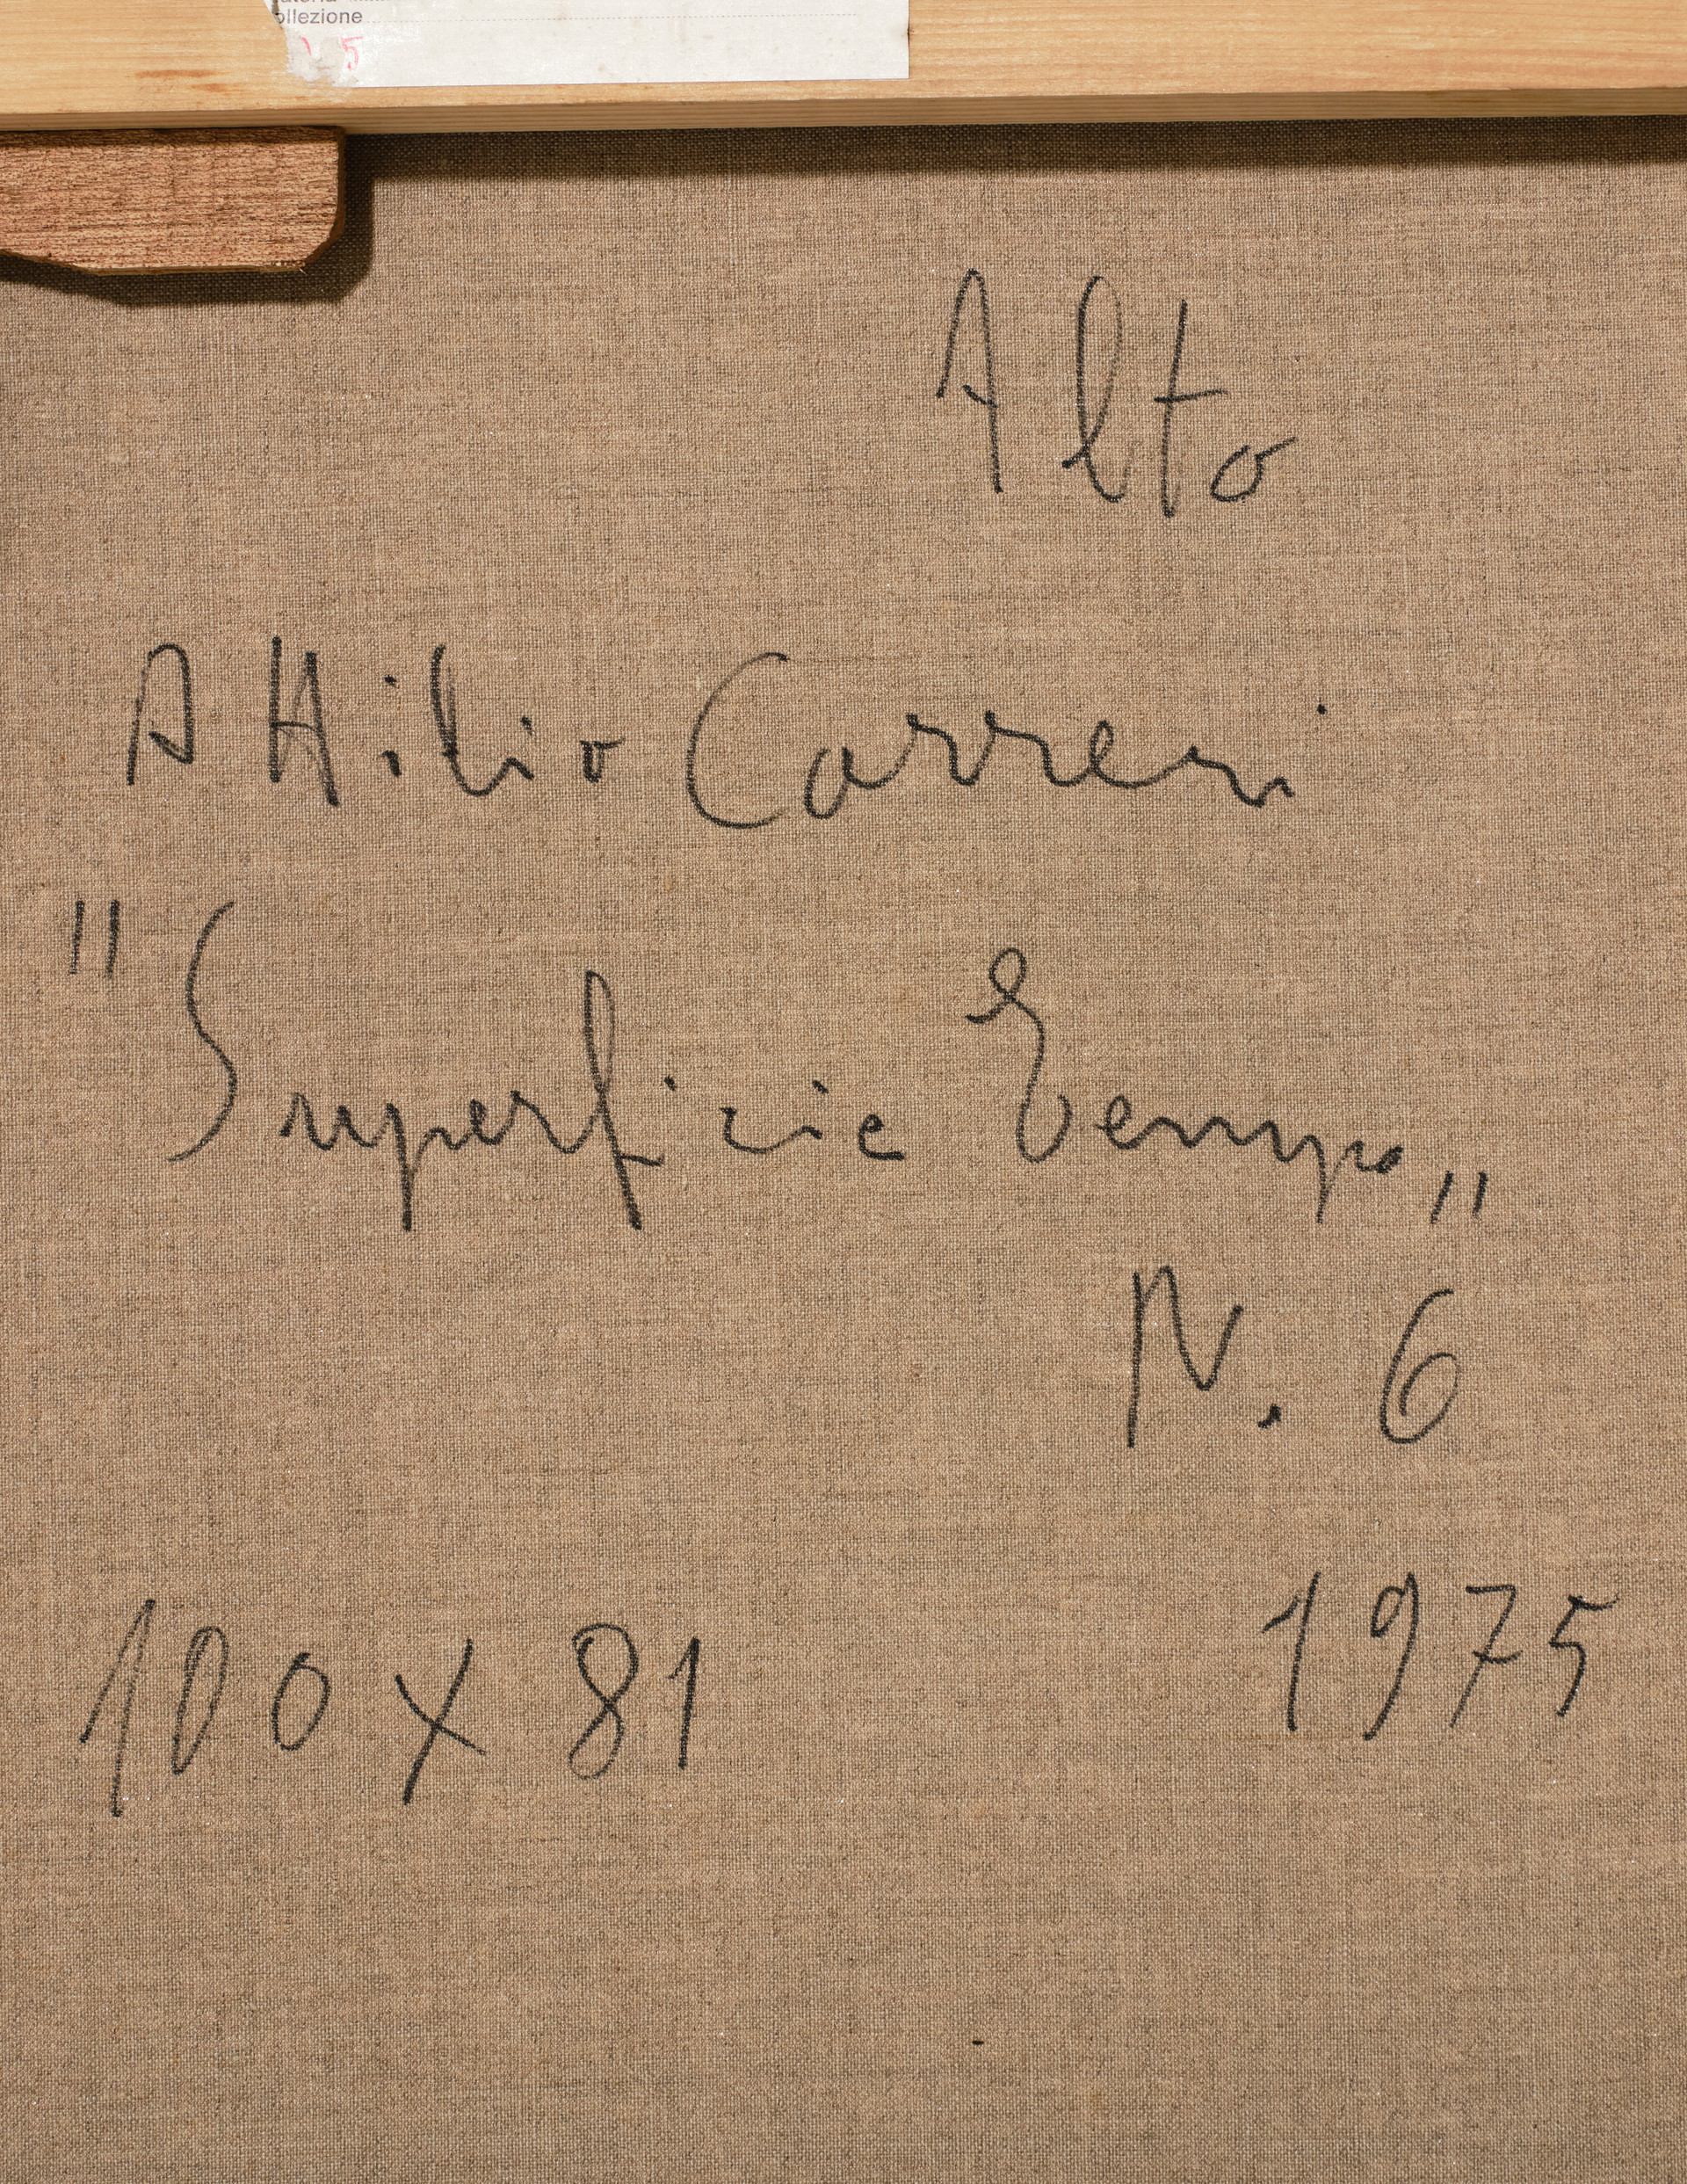 ollezione
5
Alto
Attilio Carreri
"Superficie Tempo„
N. 6
1975
100 x 81